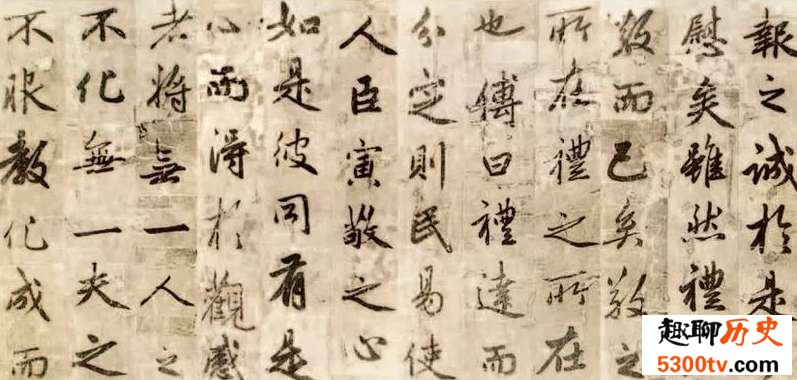 報之誠於是
慰矣雖然禮
敬而已矣敬之
所在禮之所在
也傳曰禮達而
分定則民易使
人臣寅敬之心
如是彼同有是
心而得於觀感
者將無一人之
不化無一夫之
不服教化成而
趣聊历史
5300tv.com